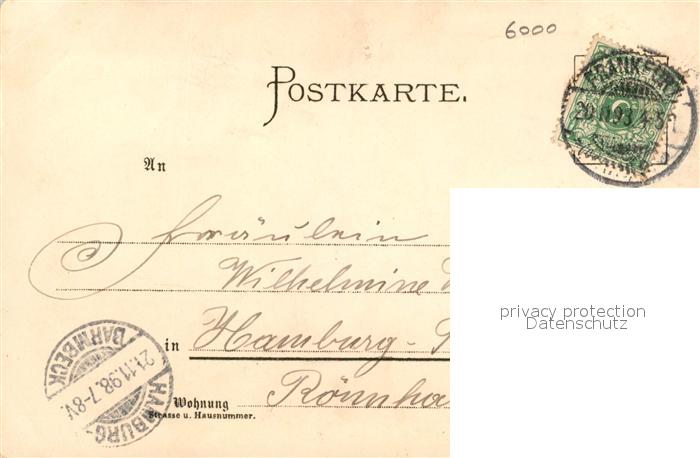 6000
POSTKARTE.
FRANKFURT
20.11.98.4-5
An
Fräulein
Wilhelmine
privacy protection
Datenschutz
in Hamburg-
Wohnung
Strasse u. Hausnummer.
HAMBURG-
BARMBECK
21.11.98.7-8V